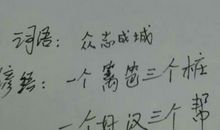 词语：众志成城
谚语：一个篱笆三个桩
一个好汉三个帮